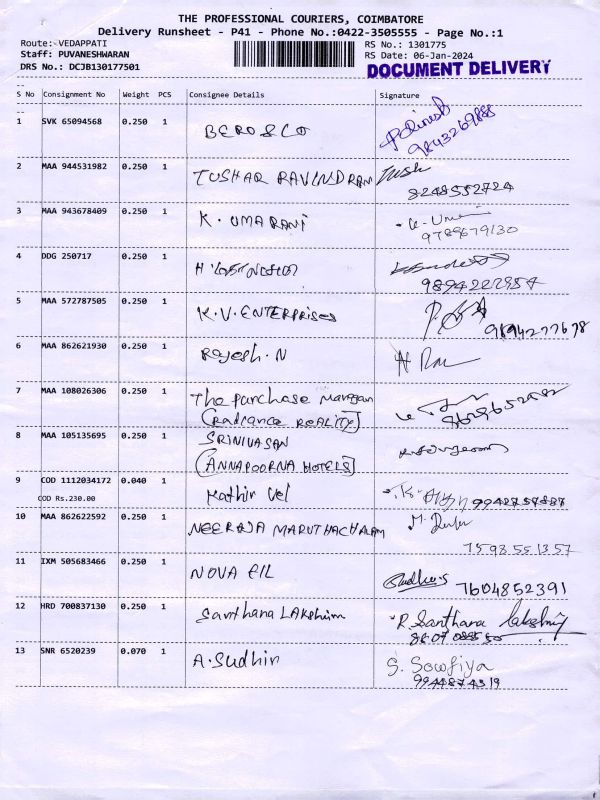 THE PROFESSIONAL COURIERS, COIMBATORE
Delivery Runsheet - P41 - Phone No.:0422-3505555 - Page No.:1
Route:-VEDAPPATI
RS No.: 1301775
Staff: PUVANESHWARAN
RS Date: 06-Jan-2024
DRS No.: DCJB130177501
DOCUMENT DELIVERY
S No Consignment No Weight PCS Consignee Details Signature
1 SVK 65094568 0.250 1 BEROS&CO
9843269888
2 MAA 944531982 0.250 1 TUSHAR RAVINDRAN Tush
8248552724
3 MAA 943678409 0.250 1 K. UMA RANi K-Uma
9789679130
4 DDG 250717 0.250 1 H
9894222954
5 MAA 572787505 0.250 1 K.V. ENTERPRISES
9894277678
6 MAA 862621930 0.250 1 Rajesh.N
7 MAA 108026306 0.250 1 The purchase Manager
(Radiance REALITY)
8 MAA 105135695 0.250 1 SRINIVASAN
(ANNAPOORNA HOTELS)
9 COD 1112034172 0.040 1 Kathir Vel
COD Rs.230.00
9942757887
10 MAA 862622592 0.250 1 NEERAJA MARUTHACHALAM
7593551357
11 IXM 505683466 0.250 1 NOVA EIL
7604852391
12 HRD 700837130 0.250 1 Santhana LAKshmi R. Santhana Lakshmi
13 SNR 6520239 0.070 1 A.Sudhir S. Sowfiya
9944874319